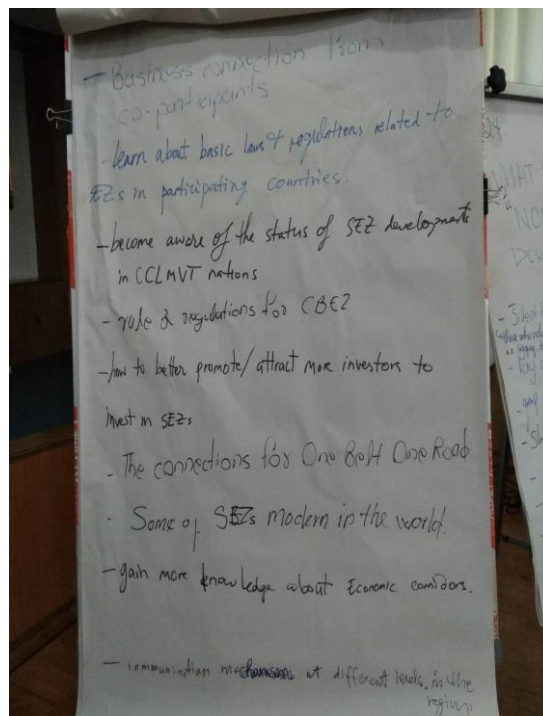 - Business connection from
co-participants
- learn about basic laws & regulations related to
SEZs in participating countries.
- become aware of the status of SEZ developments
in CCLMVT nations
- rule & regulations for CBEZ
- how to better promote/attract more investors to
invest in SEZs
- The connections for One Belt One Road
- Some of SEZs modern in the world.
- gain more knowledge about Economic corridors.
- communication mechanisms at different levels, in the
region
WHAT
NO